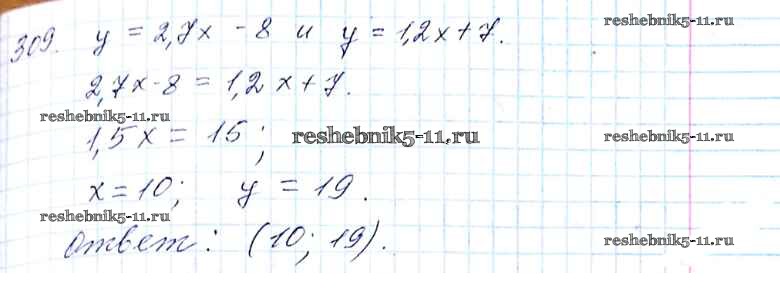 309. y = 2,7x - 8 и y = 1,2x + 7.
reshebnik5-11.ru
2,7x - 8 = 1,2x + 7.
reshebnik5-11.ru
1,5x = 15;
reshebnik5-11.ru
reshebnik5-11.ru
x = 10; y = 19.
reshebnik5-11.ru
Ответ: (10; 19).
reshebnik5-11.ru